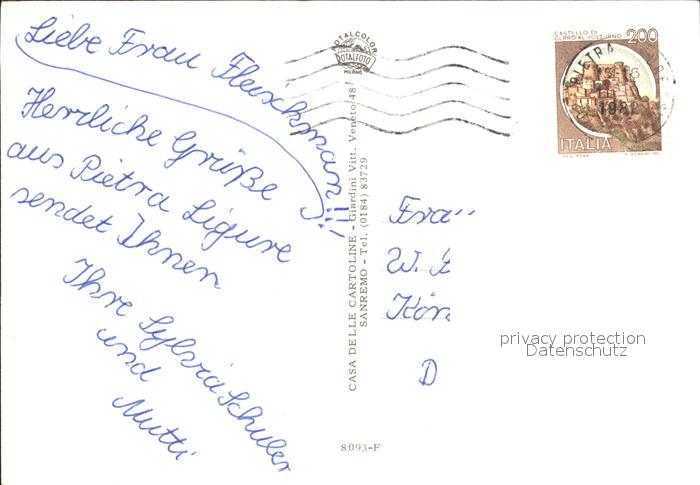 Liebe Frau Fleischmann!!!
Herrliche Grüße
aus Pietra Ligure
sendet Ihnen
Ihre Sylvia Schuler
und
Mutti
ROTALCOLOR
ROTALFOTO
MILANO
CASA DELLE CARTOLINE - Giardini Vitt. Veneto 48
SANREMO - Tel. (0184) 83729
8093-F
CASTELLO DI
CERRO AL VOLTURNO 200
PIETRA
ITALIA
Frau
W.
Kön
D
privacy protection
Datenschutz